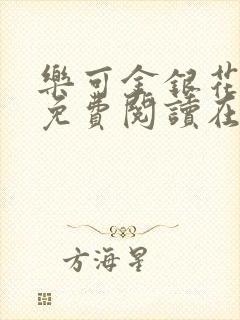 樂可金銀花
免費閱讀在
方海星